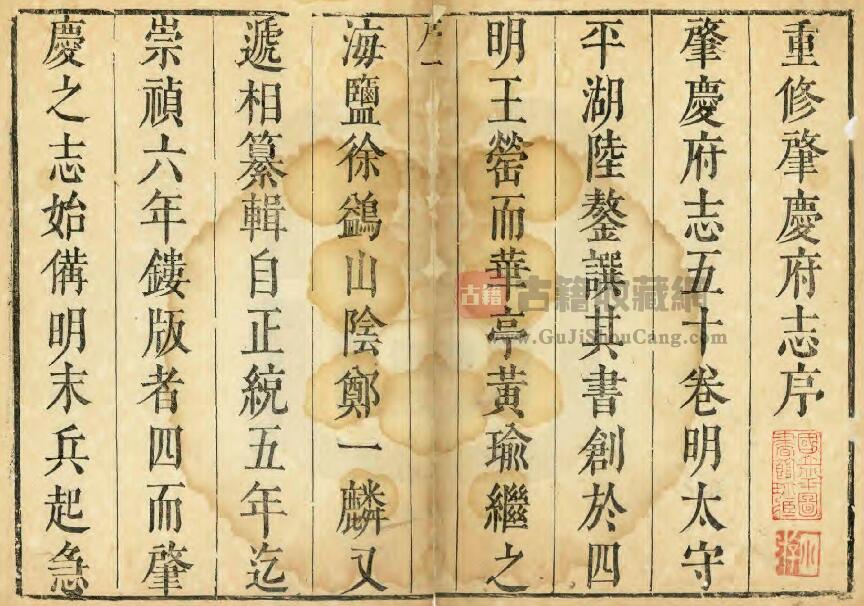 重修肇慶府志序
肇慶府志五十卷明太守
平湖陸鏊譔其書創於四
明王罃而華亭黃瑜繼之
序一
海鹽徐鷁山陰鄭一麟又
遞相纂輯自正統五年迄
崇禎六年鏤版者四而肇
慶之志始備明末兵起急
古籍
古籍收藏網
www.GuJiShouCang.com